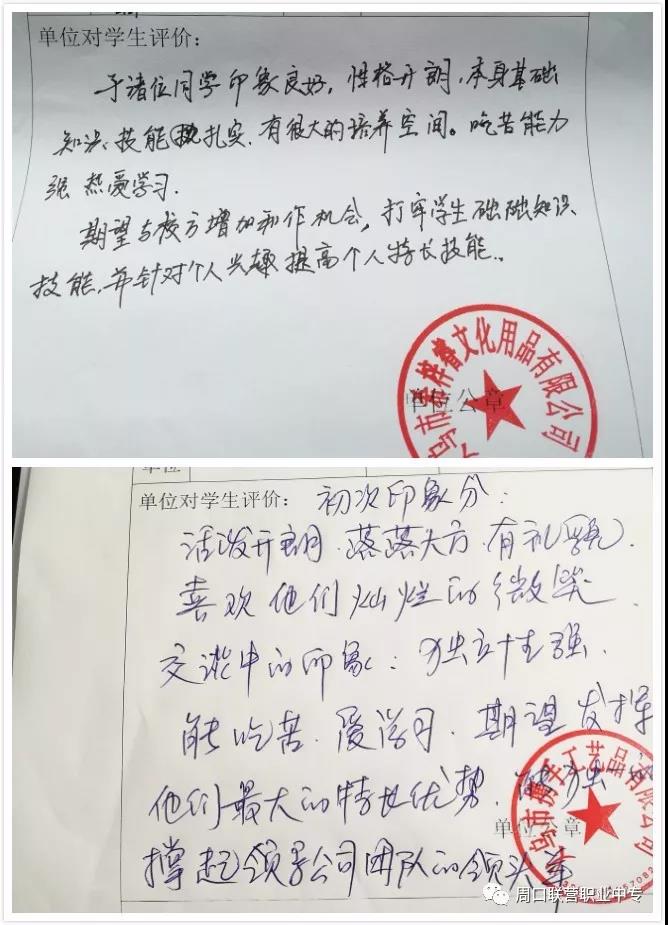 单位对学生评价:
于诸位同学印象良好，性格开朗，本身基础
知识、技能扎实，有很大的培养空间。吃苦能力
强 热爱学习.
期望与校方增加和作机会，打牢学生础础知识、
技能，并针对个人兴趣提高个人特长技能.
乌市
祥睿文化用品有限公司
单位公章
单位
单位对学生评价: 初次印象分:
活泼开朗.落落大方.有礼貌.
喜欢他们灿烂的微笑.
交谈中的印象: 独立性强.
能吃苦.爱学习.期望发挥
他们最大的特长优势.
撑起领导公司团队的领头羊
乌市携手工艺品有限公司
单位公章
周口联营职业中专